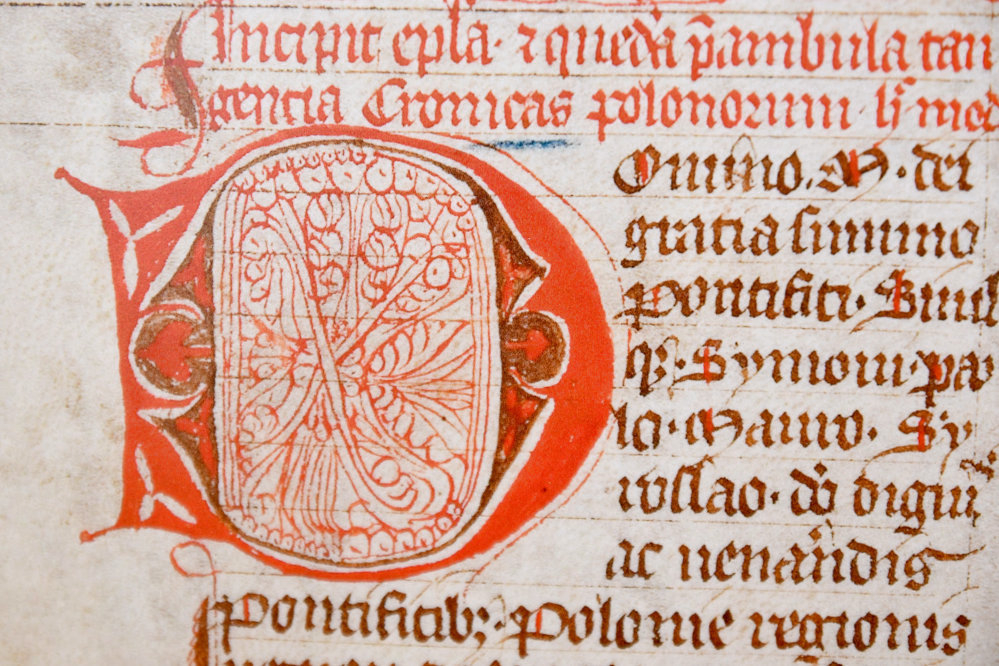 Incipit epl̅a · ⁊ queda̅ p̅ambula tan
gencia Cronicas polonorum
Domino · M · dei
gratia summo
Pontifici · Simul
q3 · Symoni · pa
lo · Mauro ·
do̅ dignis
ac uenan̅dis
Pontificib3 · Polonie regionis